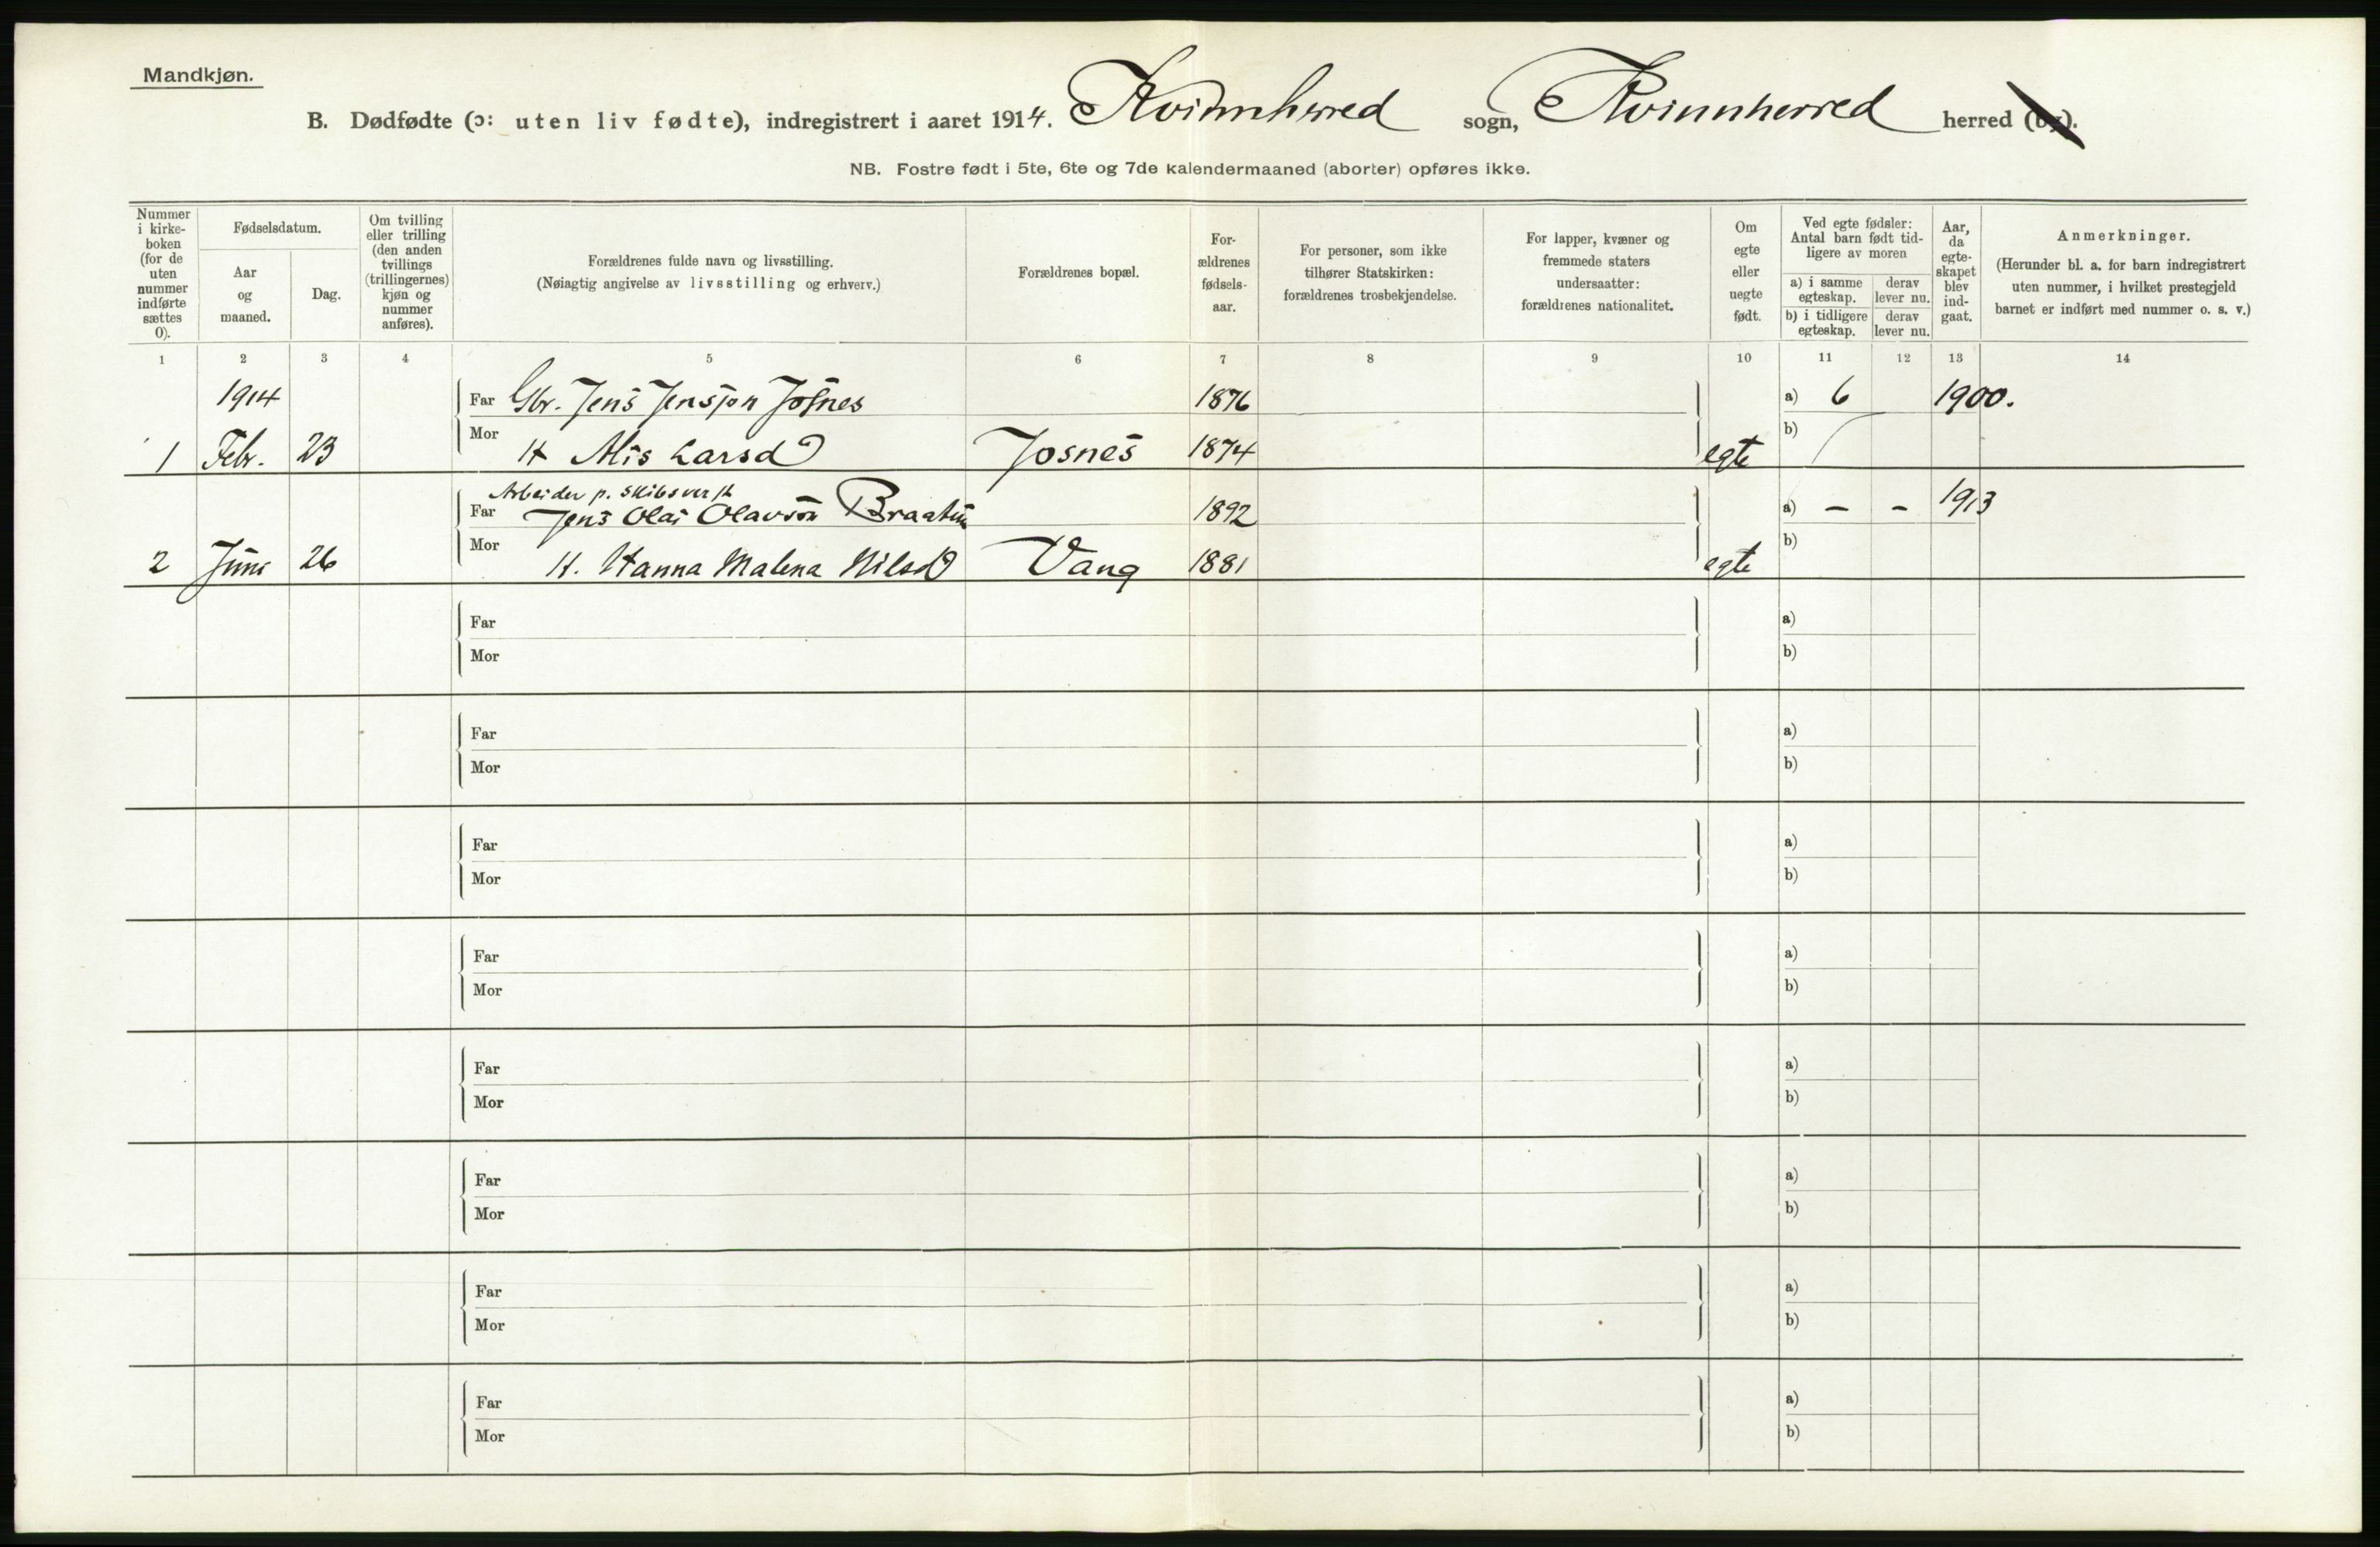 Mandkjøn.
B. Dødfødte (ɔ: uten liv fødte), indregistrert i aaret 1914. Kvinnherred sogn, Kvinnherred herred (by).
NB. Fostre født i 5te, 6te og 7de kalendermaaned (aborter) opføres ikke.
Nummer i kirke-boken (for de uten nummer indførte sættes 0).
Fødselsdatum.
Aar og maaned.
Dag.
Om tvilling eller trilling (den anden tvillings (trillingernes) kjøn og nummer anføres).
Forældrenes fulde navn og livsstilling.
(Nøiagtig angivelse av livsstilling og erhverv.)
Forældrenes bopæl.
For-ældrenes fødsels-aar.
For personer, som ikke tilhører Statskirken: forældrenes trosbekjendelse.
For lapper, kvæner og fremmede staters undersaatter: forældrenes nationalitet.
Om egte eller uegte født.
Ved egte fødsler: Antal barn født tid-ligere av moren
a) i samme egteskap.
derav lever nu.
b) i tidligere egteskap.
derav lever nu.
Aar, da egte-skapet blev ind-gaat.
Anmerkninger.
(Herunder bl. a. for barn indregistrert uten nummer, i hvilket prestegjeld barnet er indført med nummer o. s. v.)
1 2 3 4 5 6 7 8 9 10 11 12 13 14
1914 Far Gbr. Jens Jensson Josnes 1876 a) 6 1900.
1 Febr. 23 Mor H Alis Larsd Josnes 1874 egte b)
Arbeider p. skibsverft
Far Jens Olai Olavson 1892 a) - - 1913
2 Juni 26 Mor H. Hanna Malena Nilsd Vang 1881 egte b)
Far a)
Mor b)
Far a)
Mor b)
Far a)
Mor b)
Far a)
Mor b)
Far a)
Mor b)
Far a)
Mor b)
Far a)
Mor b)
Far a)
Mor b)